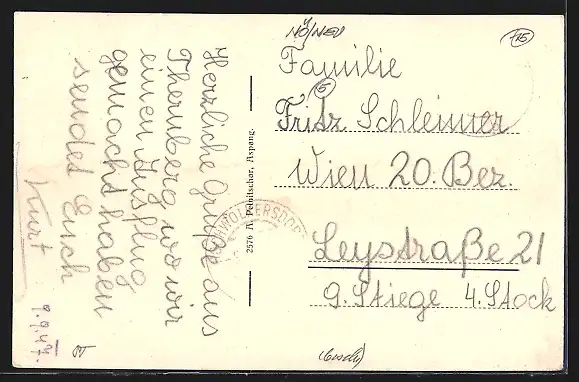 Herzliche Grüße aus
Thernberg wo wir
einen Ausflug
gemacht haben
sendet Euch
Kurt
9.9.47.
2576 A. Pelnitschar, Aspang.
NÖ/NEU
775
Familie
Fritz Schleimer
6
Wien 20. Bez.
Leystraße 21
9. Stiege 4. Stock